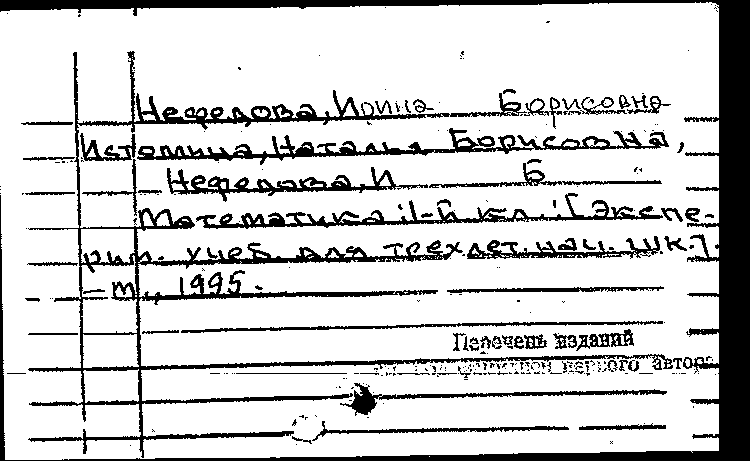 Нефедова, Ирина Борисовна
Истомина, Наталья Борисовна,
Нефедова, И Б
Математика :1-й кл. : [Экспе-
рим. учеб. для трехлет. нач. шк.].
— М., 1995.
Перечень изданий
первого автора